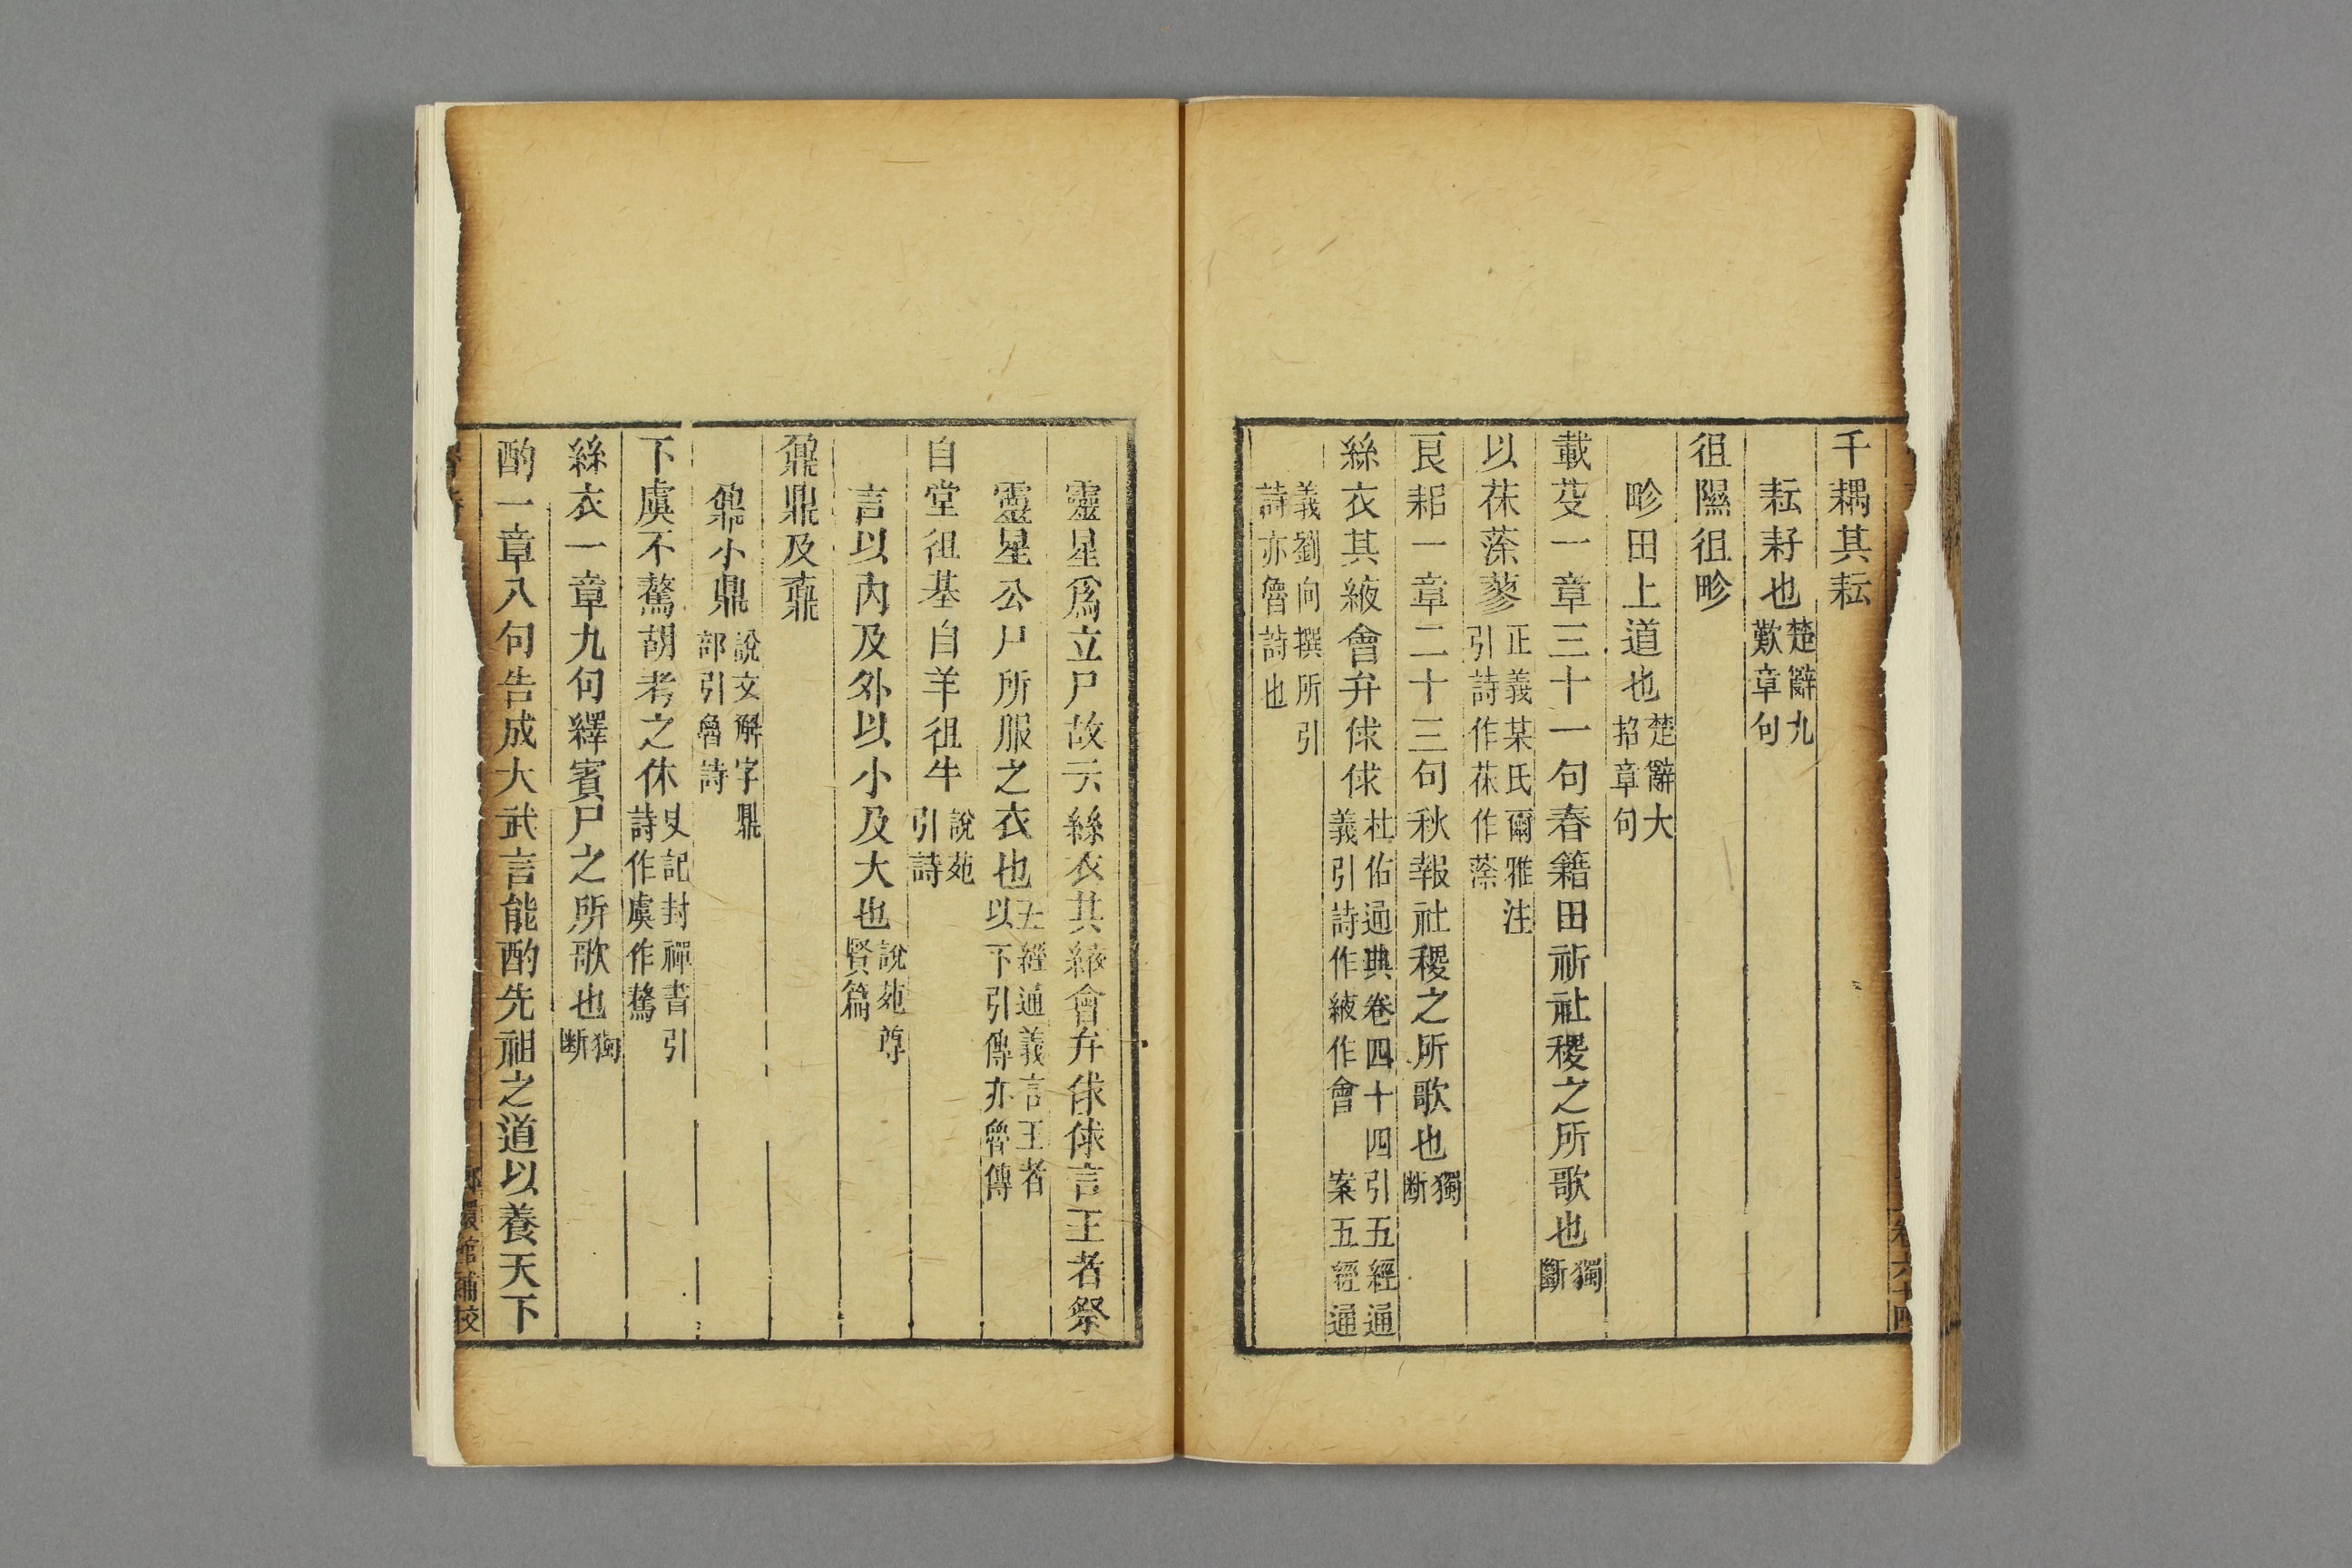 千耦其耘
耘耔也楚辭九歎章句
徂隰徂畛
畛田上道也楚辭大招章句
載芟一章三十一句春籍田祈社稷之所歌也獨斷
以茠蒤蓼正義某氏爾雅注引詩作茠作蒤
良耜一章二十三句秋報社稷之所歌也獨斷
絲衣其紑會弁俅俅杜佑通典卷四十四引五經通義引詩作紑作會 案五經通
義劉向撰所引詩亦魯詩也
靈星爲立尸故云絲衣其紑會弁俅俅言王者祭
靈星公尸所服之衣也五經通義言王者以下引傳亦魯傳
自堂徂基自羊徂牛說苑引詩
言以內及外以小及大也說苑尊賢篇
鼐鼎及鼒
鼒小鼎說文解字鼎部引魯詩
下虞不驁胡考之休史記封禪書引詩作虞作驁
絲衣一章九句繹賓尸之所歌也獨斷
酌一章八句告成大武言能酌先祖之道以養天下
嬛館補校
卷六十四